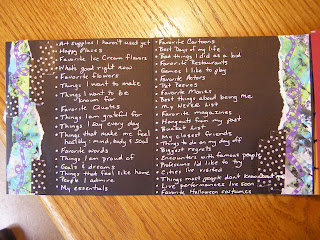 • Art supplies I haven't used yet
• Happy Places
• Favorite Ice Cream flavors
• What's good right now
• Favorite flowers
• Things I want to make
• Things I want to be
known for
• Favorite Quotes
• Things I am grateful for
• Things I say every day
• Things that make me feel
healthy: mind, body & soul
• Favorite words
• Things I am proud of
• Goals & dreams
• Things that feel like home
• People I admire
• My essentials
• Favorite Cartoons
• Best Days of my life
• Bad things I did as a kid
• Favorite Restaurants
• Games I like to play
• Favorite Actors
• Pet Peeves
• Favorite Movies
• Best things about being me
• My Nerdee List
• Favorite magazines
• Moments from my past
• Bucket List
• My closest friends
• Things to do on my day off
• Biggest regrets
• Encounters with famous people
• Professions I'd like to try
• Cities I've visited
• Things most people don't know about me
• Live performances I've seen
• Favorite Halloween costumes